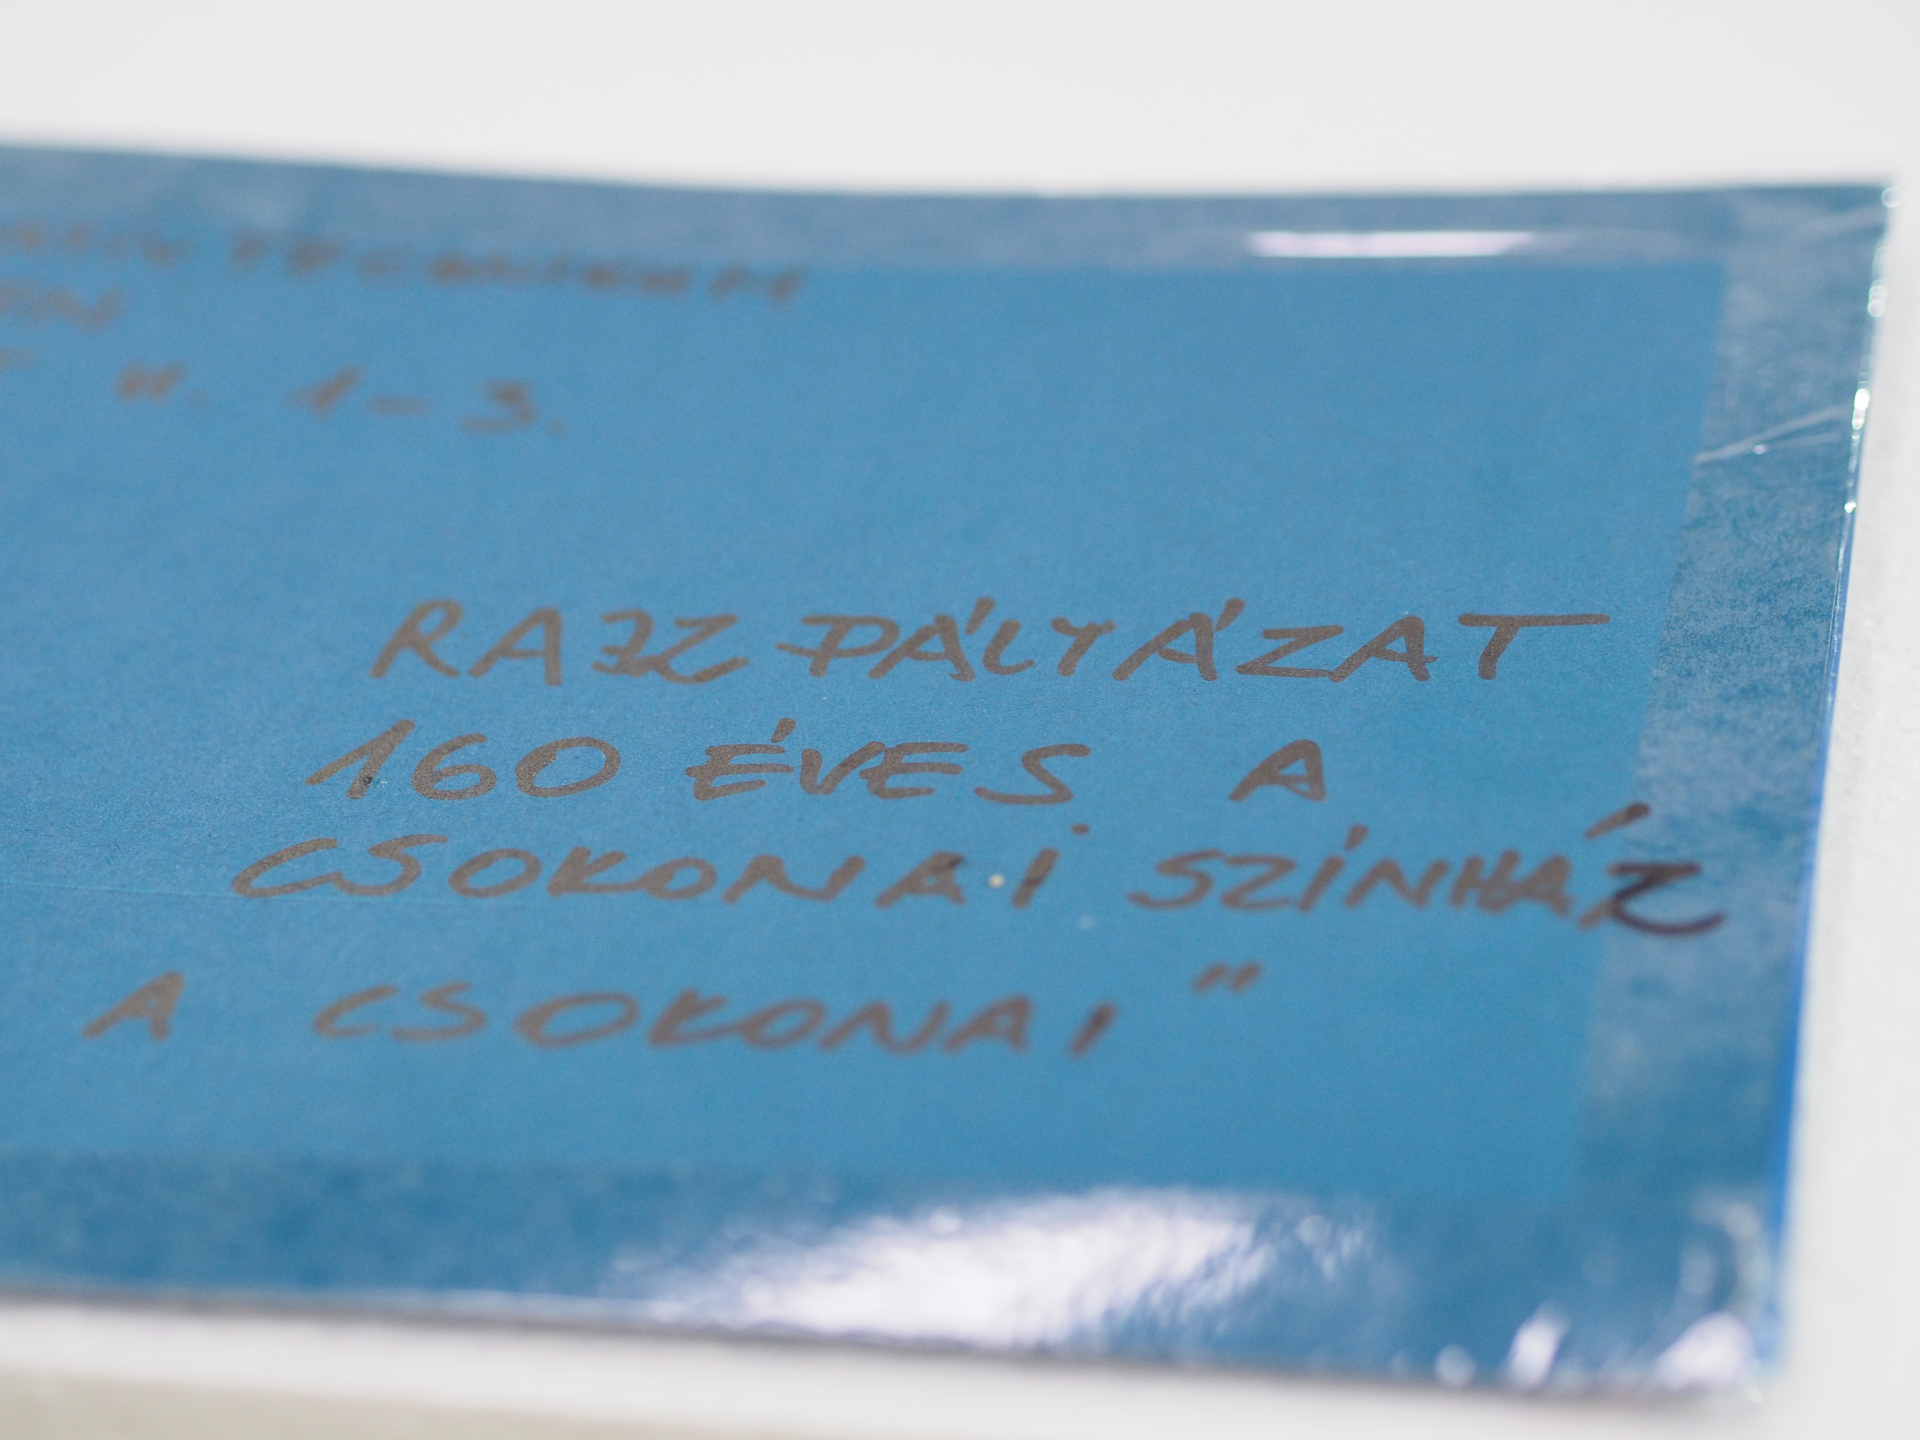 H. 1-3.
RAJZ PÁLYÁZAT
160 ÉVES A
CSOKONAI SZÍNHÁZ
A CSOKONAI"